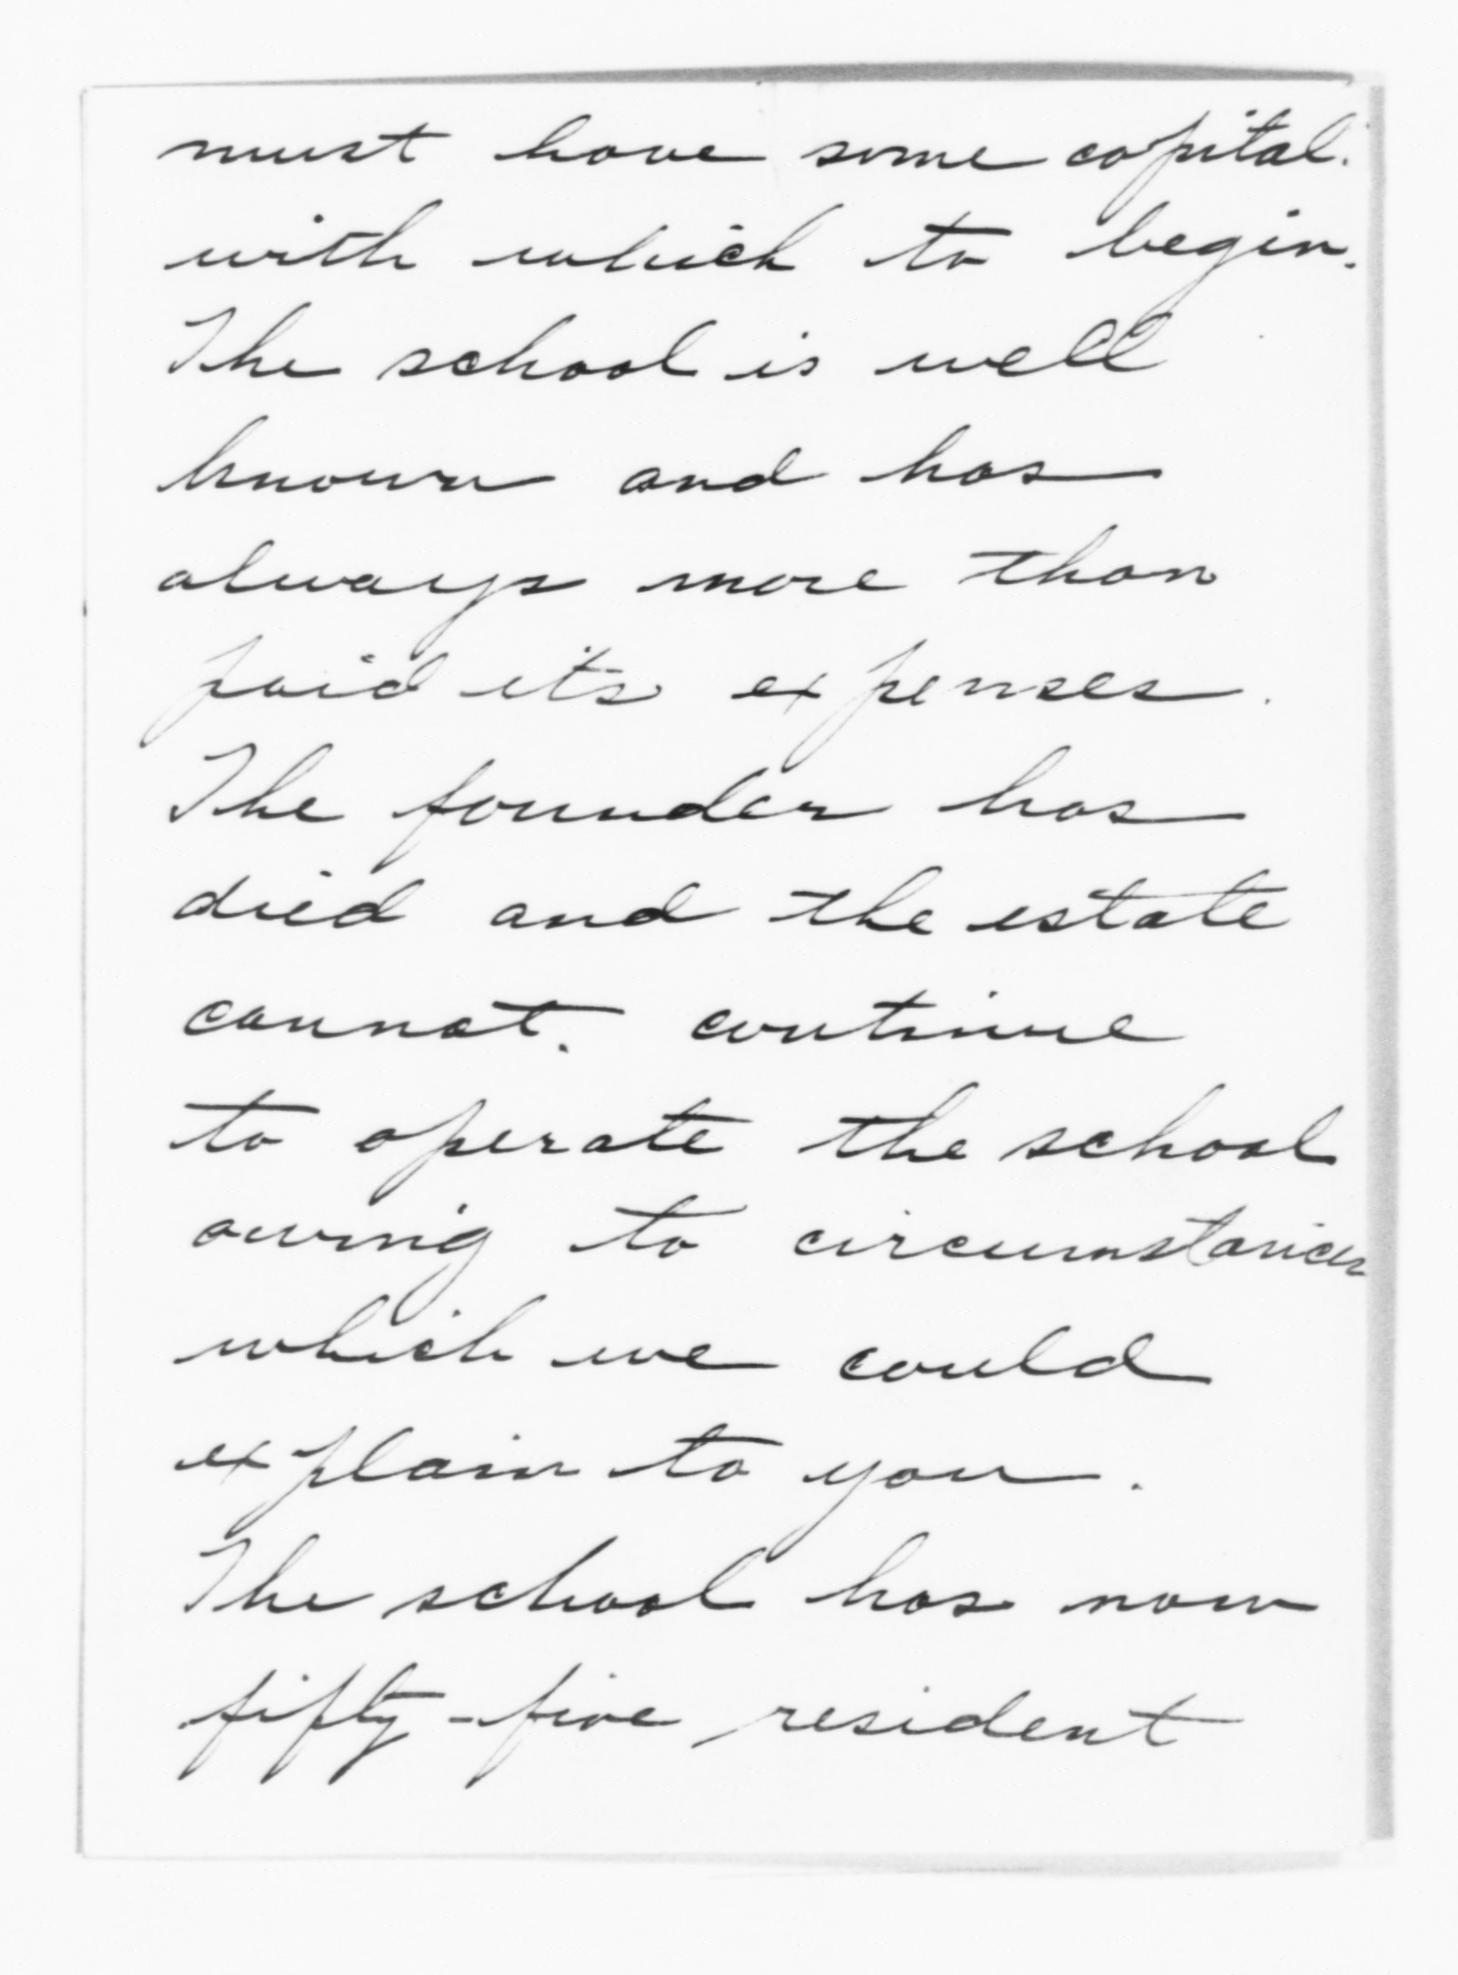 must have some capital.
with which to begin.
The school is well
known and has
always more than
paid its expenses.
The founder has
died and the estate
cannot. continue
to operate the school
owing to circumstances
which we could
explain to you.
The school has now
fifty-five resident